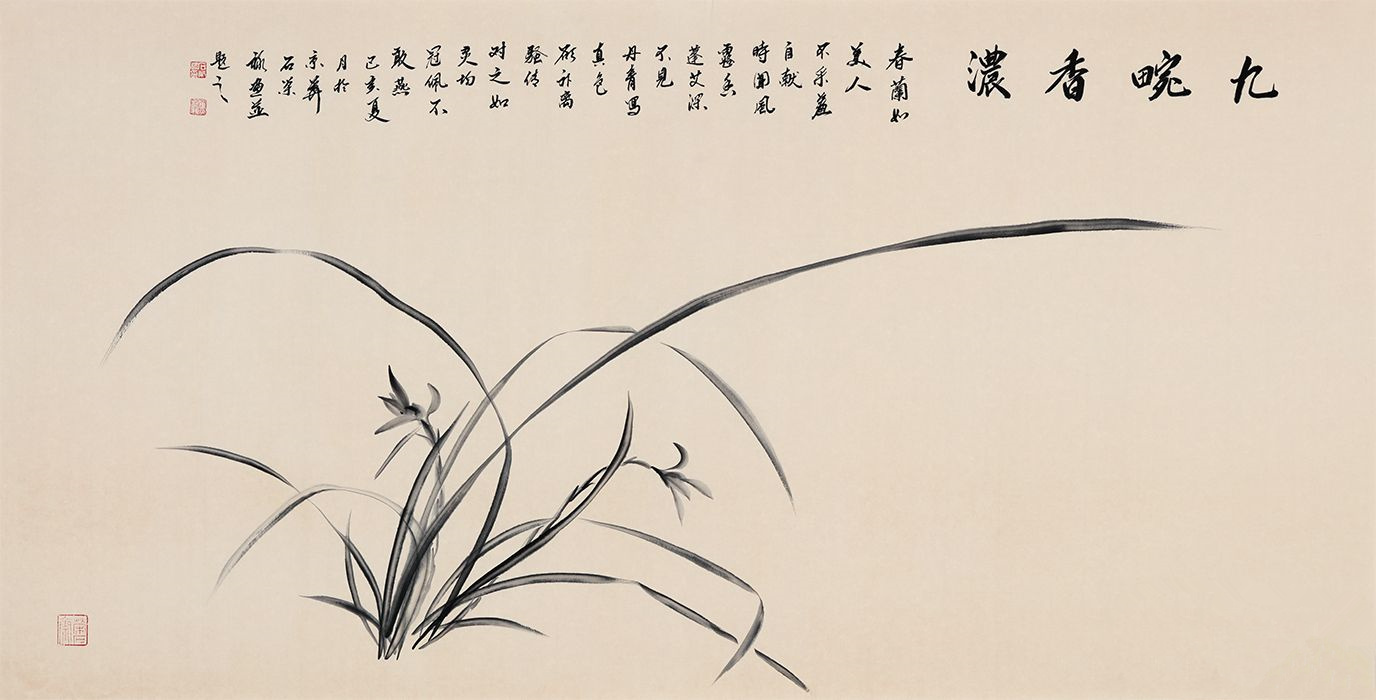 九畹香濃
春蘭如
美人
不采羞
自献
時聞風
露香
蓬艾深
不見
丹青寫
真色
欲补离
騷传
对之如
灵均
冠佩不
敢燕
己亥夏
月於
京華
石荣
画並
題之